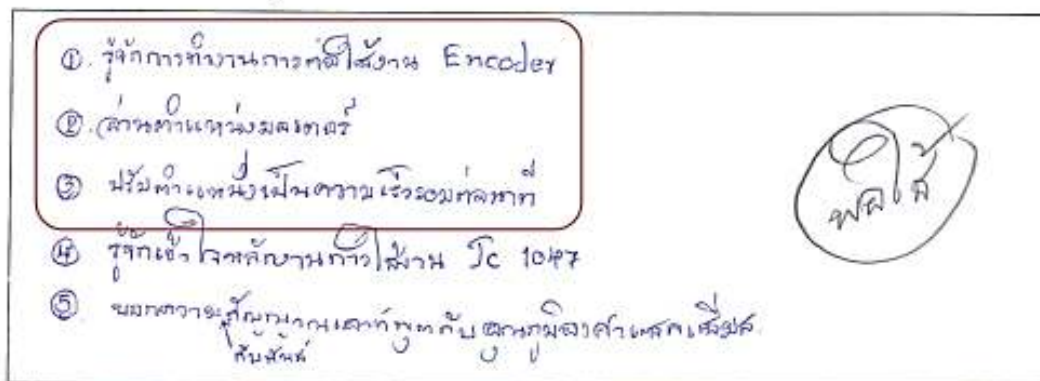 ① รู้จักการทำงานการต่อใช้งาน Encoder
② อ่านตำแหน่งมอเตอร์
③ ปรับตำแหน่งเป็นความเร็วรอบต่อนาที
④ รู้จักเข้าใจหลักงานการใช้งาน Ic 1047
⑤ บอกความสัมพันธ์ สัญญาณเอาท์พุทกับอุณหภูมิองศาเซลเซียส
พอใช้